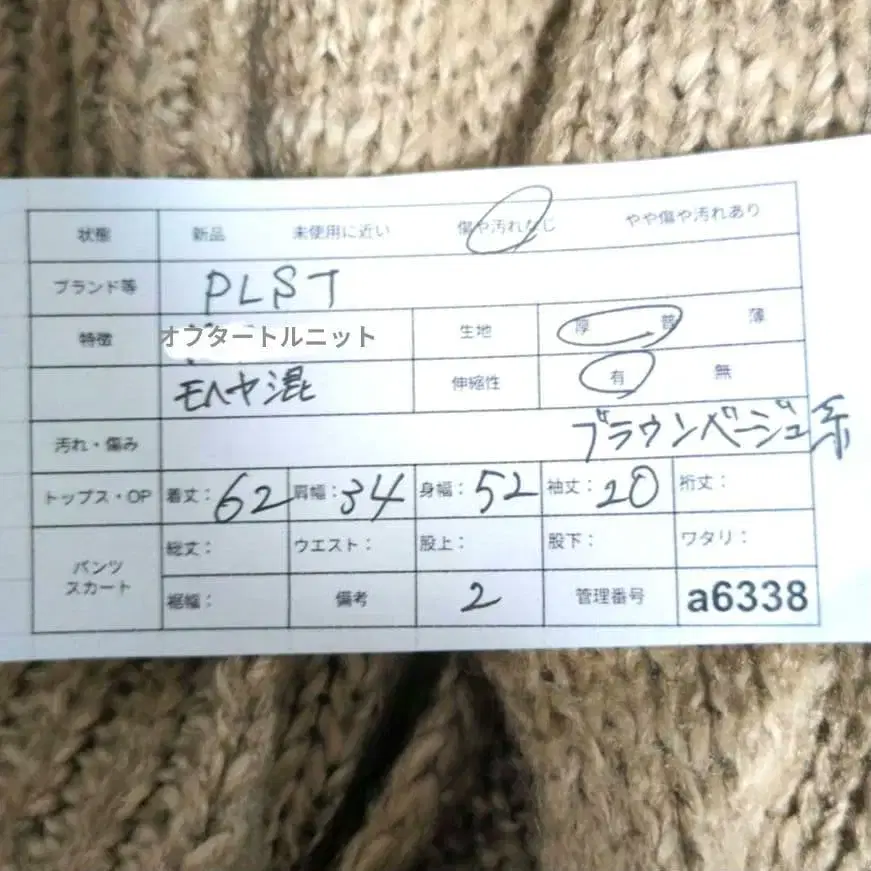 状態 新品 未使用に近い 傷や汚れなし やや傷や汚れあり
ブランド等 PLST
特徴 オフタートルニット 生地 厚 普 薄
モヘヤ混 伸縮性 有 無
汚れ・傷み ブラウンベージュ系
トップス・OP 着丈: 62 肩幅: 34 身幅: 52 袖丈: 20 裄丈:
パンツ スカート 総丈: ウエスト: 股上: 股下: ワタリ:
裾幅: 備考 2 管理番号 a6338